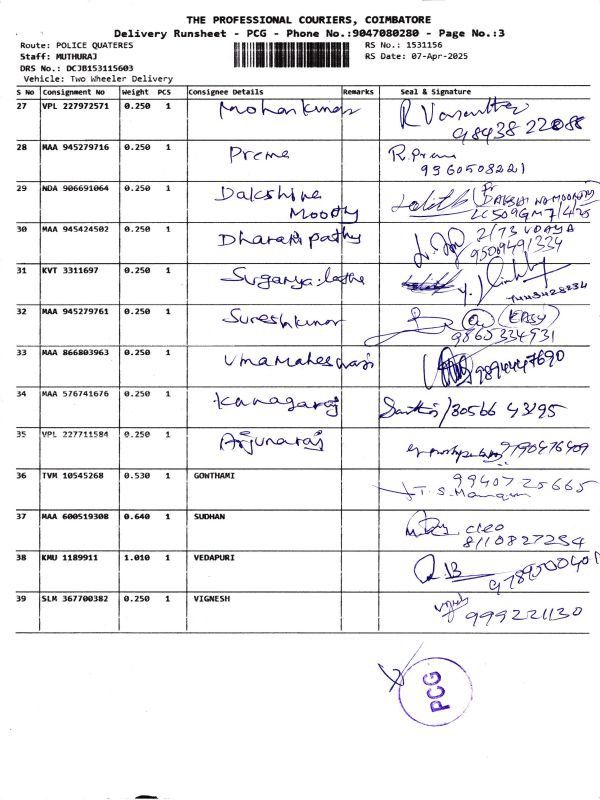 THE PROFESSIONAL COURIERS, COIMBATORE
Delivery Runsheet - PCG - Phone No.:9047080280 - Page No.:3
Route: POLICE QUATERES RS No.: 1531156
Staff: MUTHURAJ RS Date: 07-Apr-2025
DRS No.: DCJB153115603
Vehicle: Two Wheeler Delivery
S No Consignment No Weight PCS Consignee Details Remarks Seal & Signature
27 VPL 227972571 0.250 1 Mohankumar R Vasantha
98438 22088
28 MAA 945279716 0.250 1 Preme R. Prema
9360508221
29 NDA 906691064 0.250 1 Dakshina
Moorthy
30 MAA 945424502 0.250 1 Dharanipathy 2/73 UDAYA
95009491334
31 KVT 3311697 0.250 1 Suganya
32 MAA 945279761 0.250 1 Sureshkumar
9865334931
33 MAA 866803963 0.250 1 Umamaheswari 9894447690
34 MAA 576741676 0.250 1 Kanagaraj 80566 43195
35 VPL 227711584 0.250 1 Arjunaraj 9790476409
36 TVM 10545268 0.530 1 GOWTHAMI 9940725665
T. S.
37 MAA 600519308 0.640 1 SUDHAN
8110827254
38 KMU 1189911 1.010 1 VEDAPURI
39 SLM 367700382 0.250 1 VIGNESH 999221130
PCG